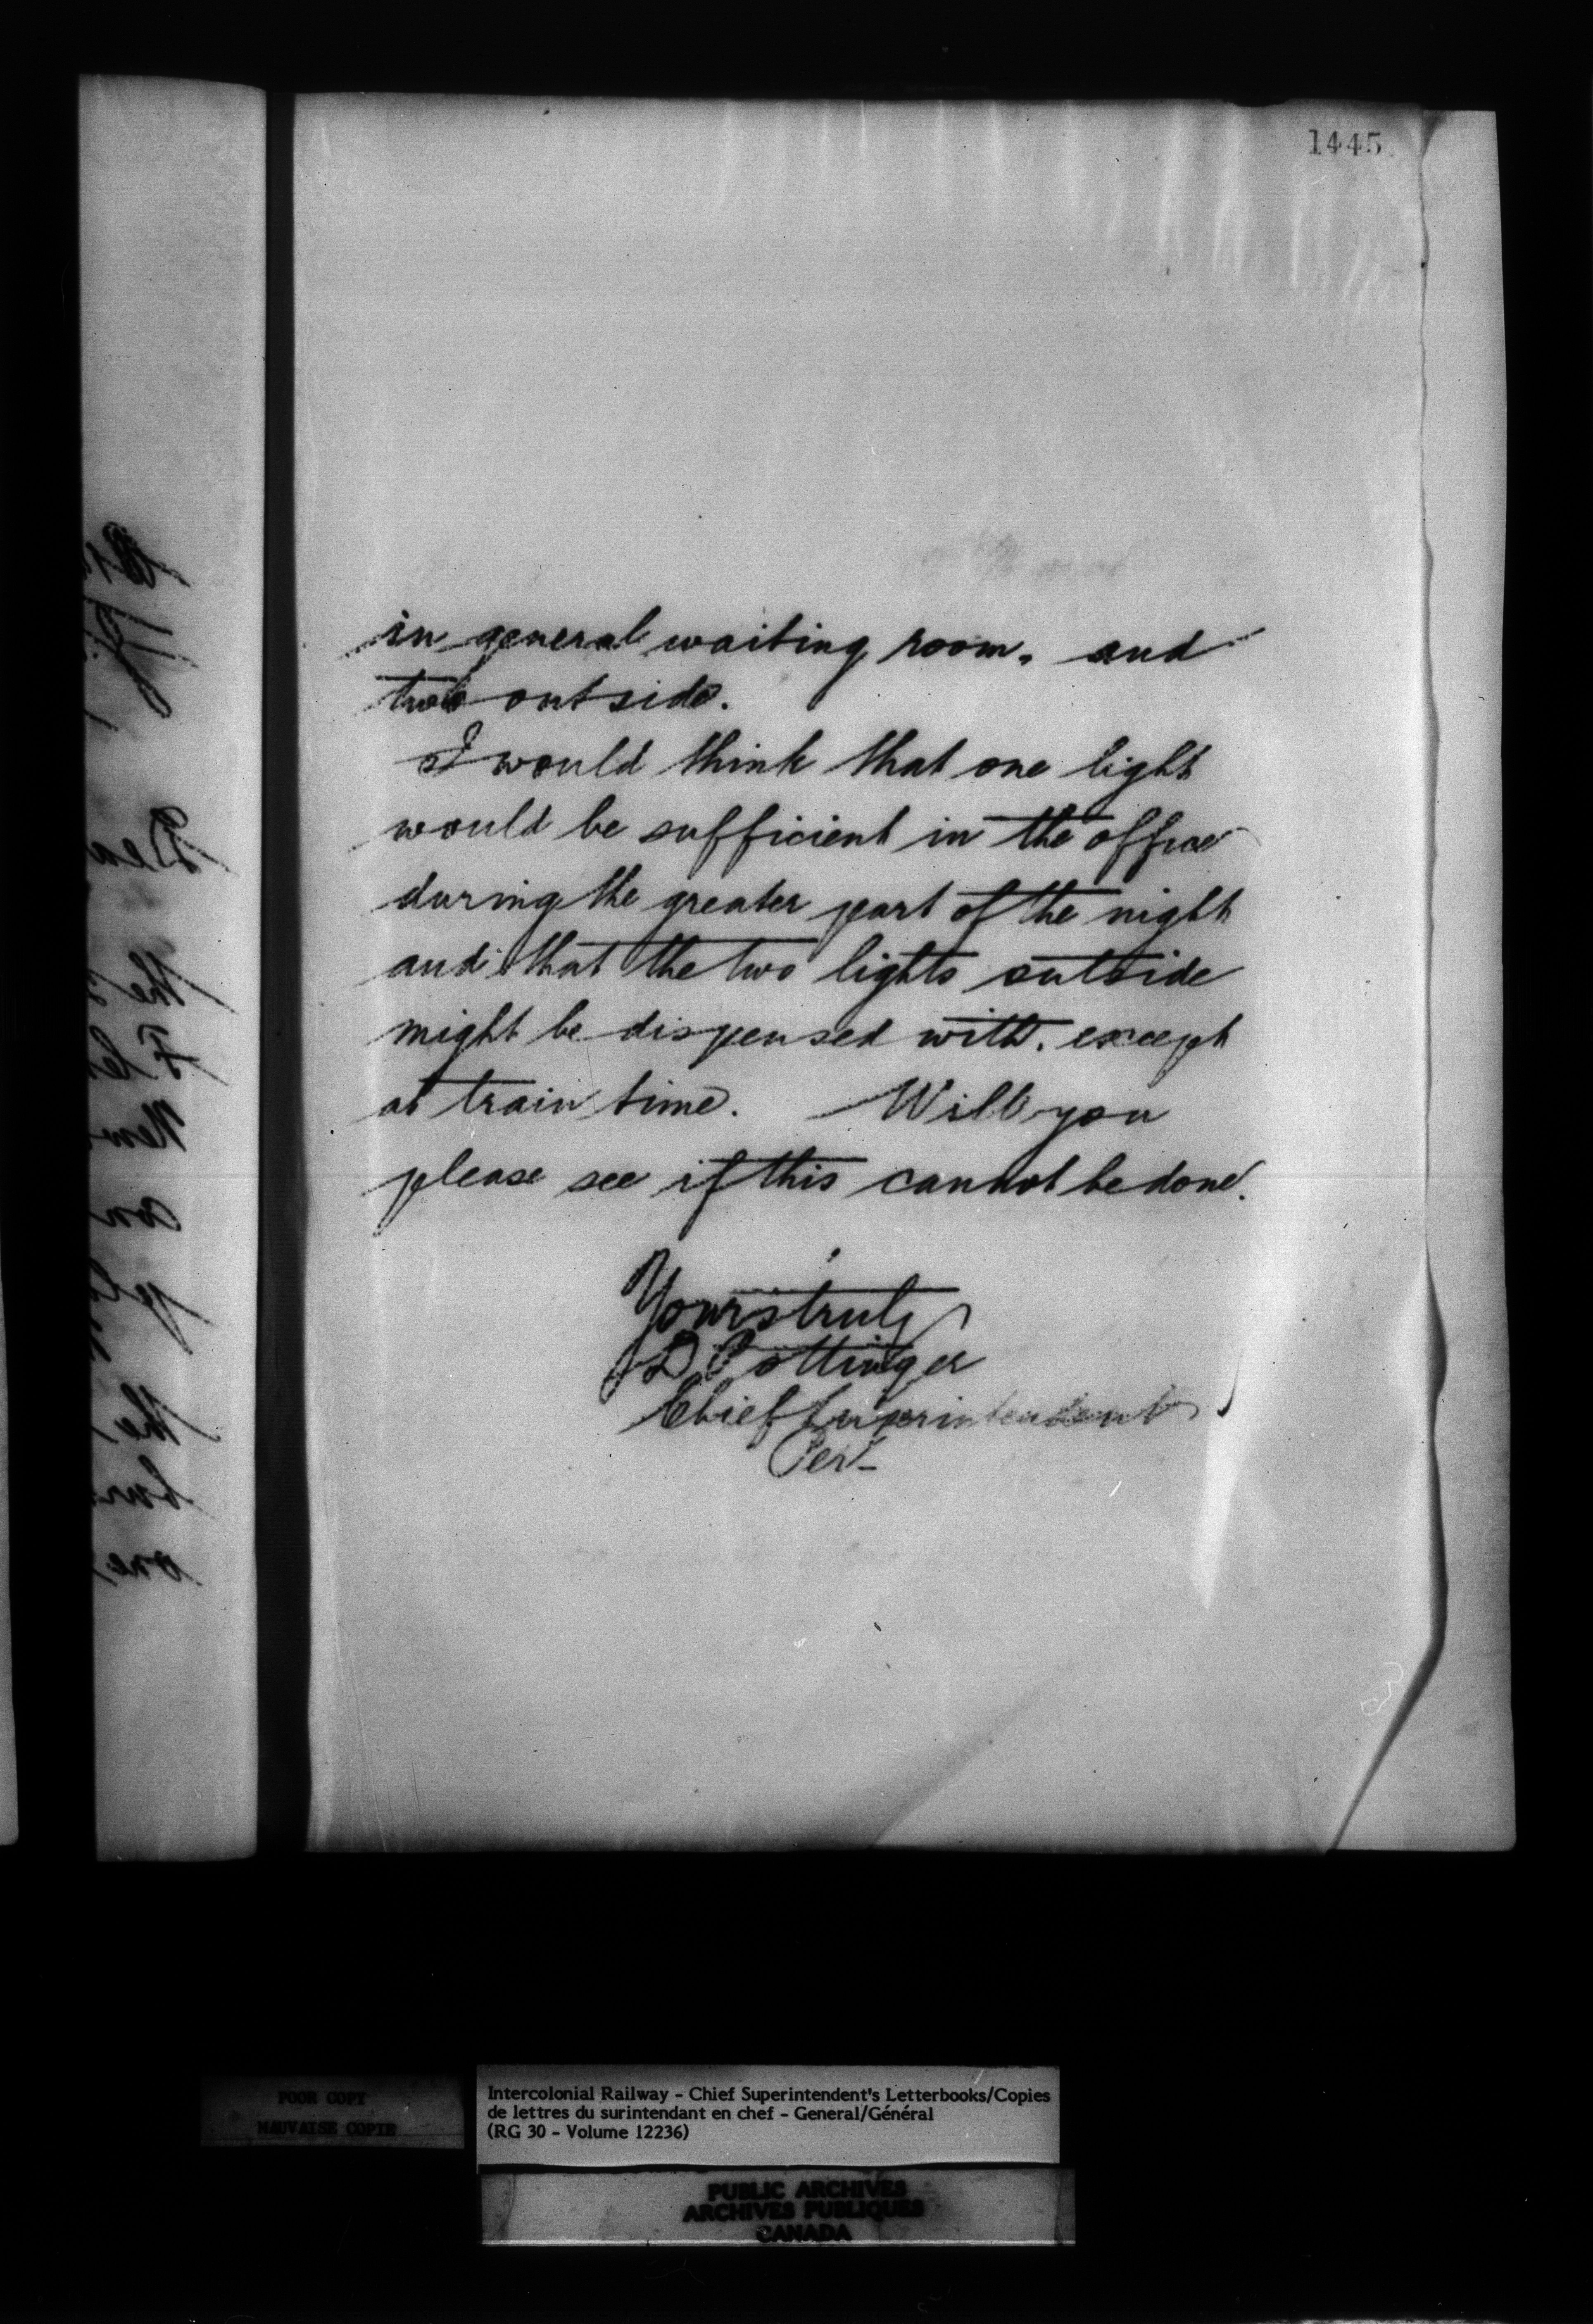 1445
in general waiting room, and
two outside.
I would think that one light
would be sufficient in the office
during the greater part of the night
and that the two lights outside
might be dispensed with, except
at train time. Will you
please see if this cannot be done.
Yours truly
D Pottinger
Chief Superintendent
Per
Dea
the
New
on
the
one
POOR COPY
MAUVAISE COPIE
Intercolonial Railway - Chief Superintendent's Letterbooks/Copies
de lettres du surintendant en chef - General/Général
(RG 30 - Volume 12236)
PUBLIC ARCHIVES
ARCHIVES PUBLIQUES
CANADA